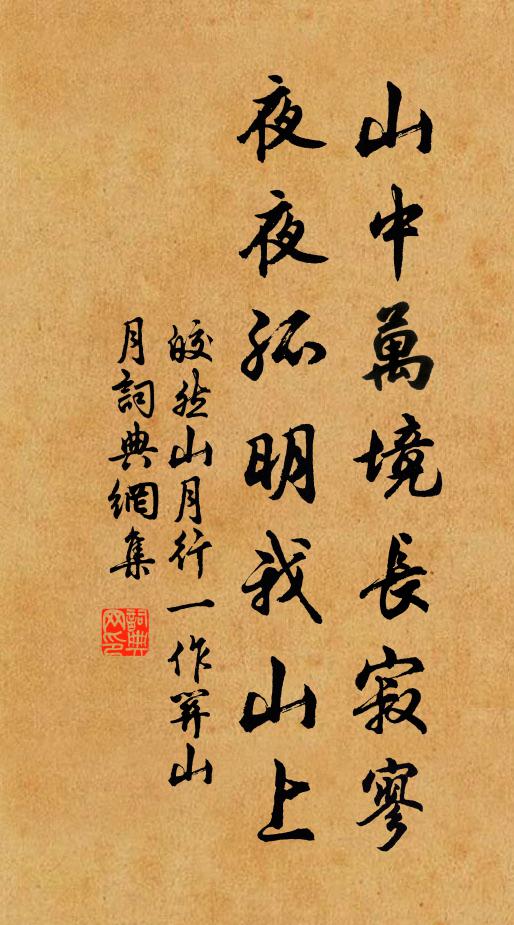 山中萬境長寂寥
夜夜孤明我山上
皎然山月行一作關山
月詞典網集
詞典网印